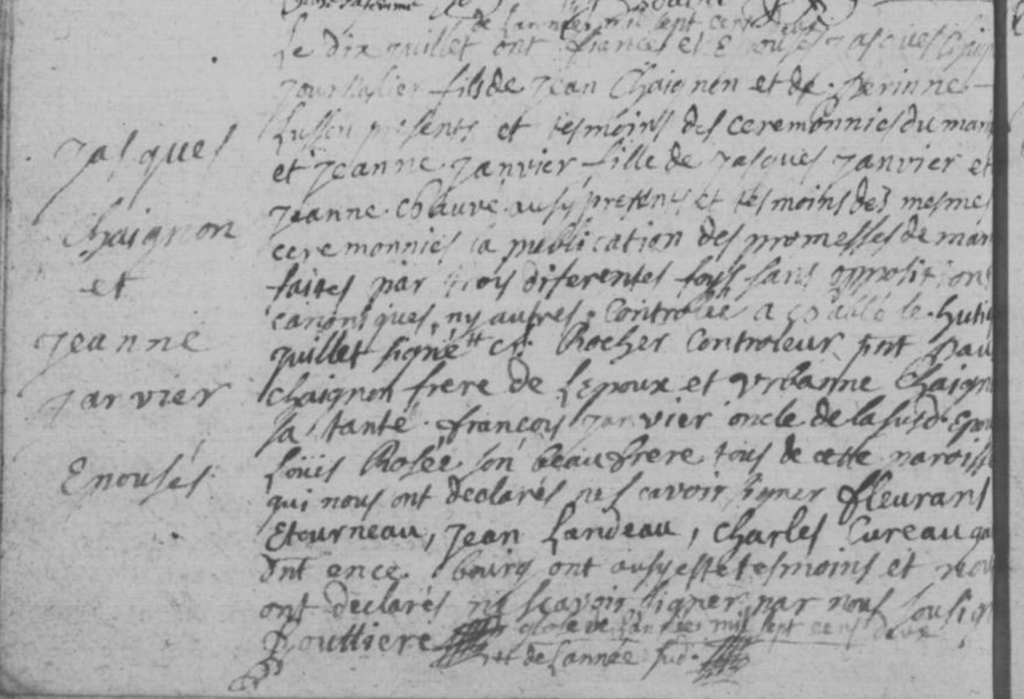 de Lannée mil sept cens
Le dix juillet ont fiances et Epouses Jasques Chaign
Journalier fils de Jean Chaignon et de perinne
Lussen presents et tesmoins des ceremonnies du mar
et Jeanne Janvier fille de Jasques Janvier et
Jeanne Chauvé aussy presens et tesmoins des mesmes
ceremonnies la publication des promesses de mar
faites par trois diferentes foys sans oppositions
canoniques ny autres, Controlée a le huti
juillet signé Rocher Controleur, sont pau
Chaignon frere de Lepoux et Urbanne Chaign
sa tante, françois Janvier oncle de la susd. Epou
Loüis Rosée son beaufrere tous de cette paroisse
qui nous ont declarés ne scavoir signer fleurans
Etourneau, Jean Landeau, Charles Cureau
bourg ont aussy esté tesmoins et
ont declarés ne scavoir signer par nous sousig
Douttiere glose de Lannée mil sept cens deux
et de Lannée sud.
Jasques
Chaignon
et
Jeanne
Janvier
Epousés